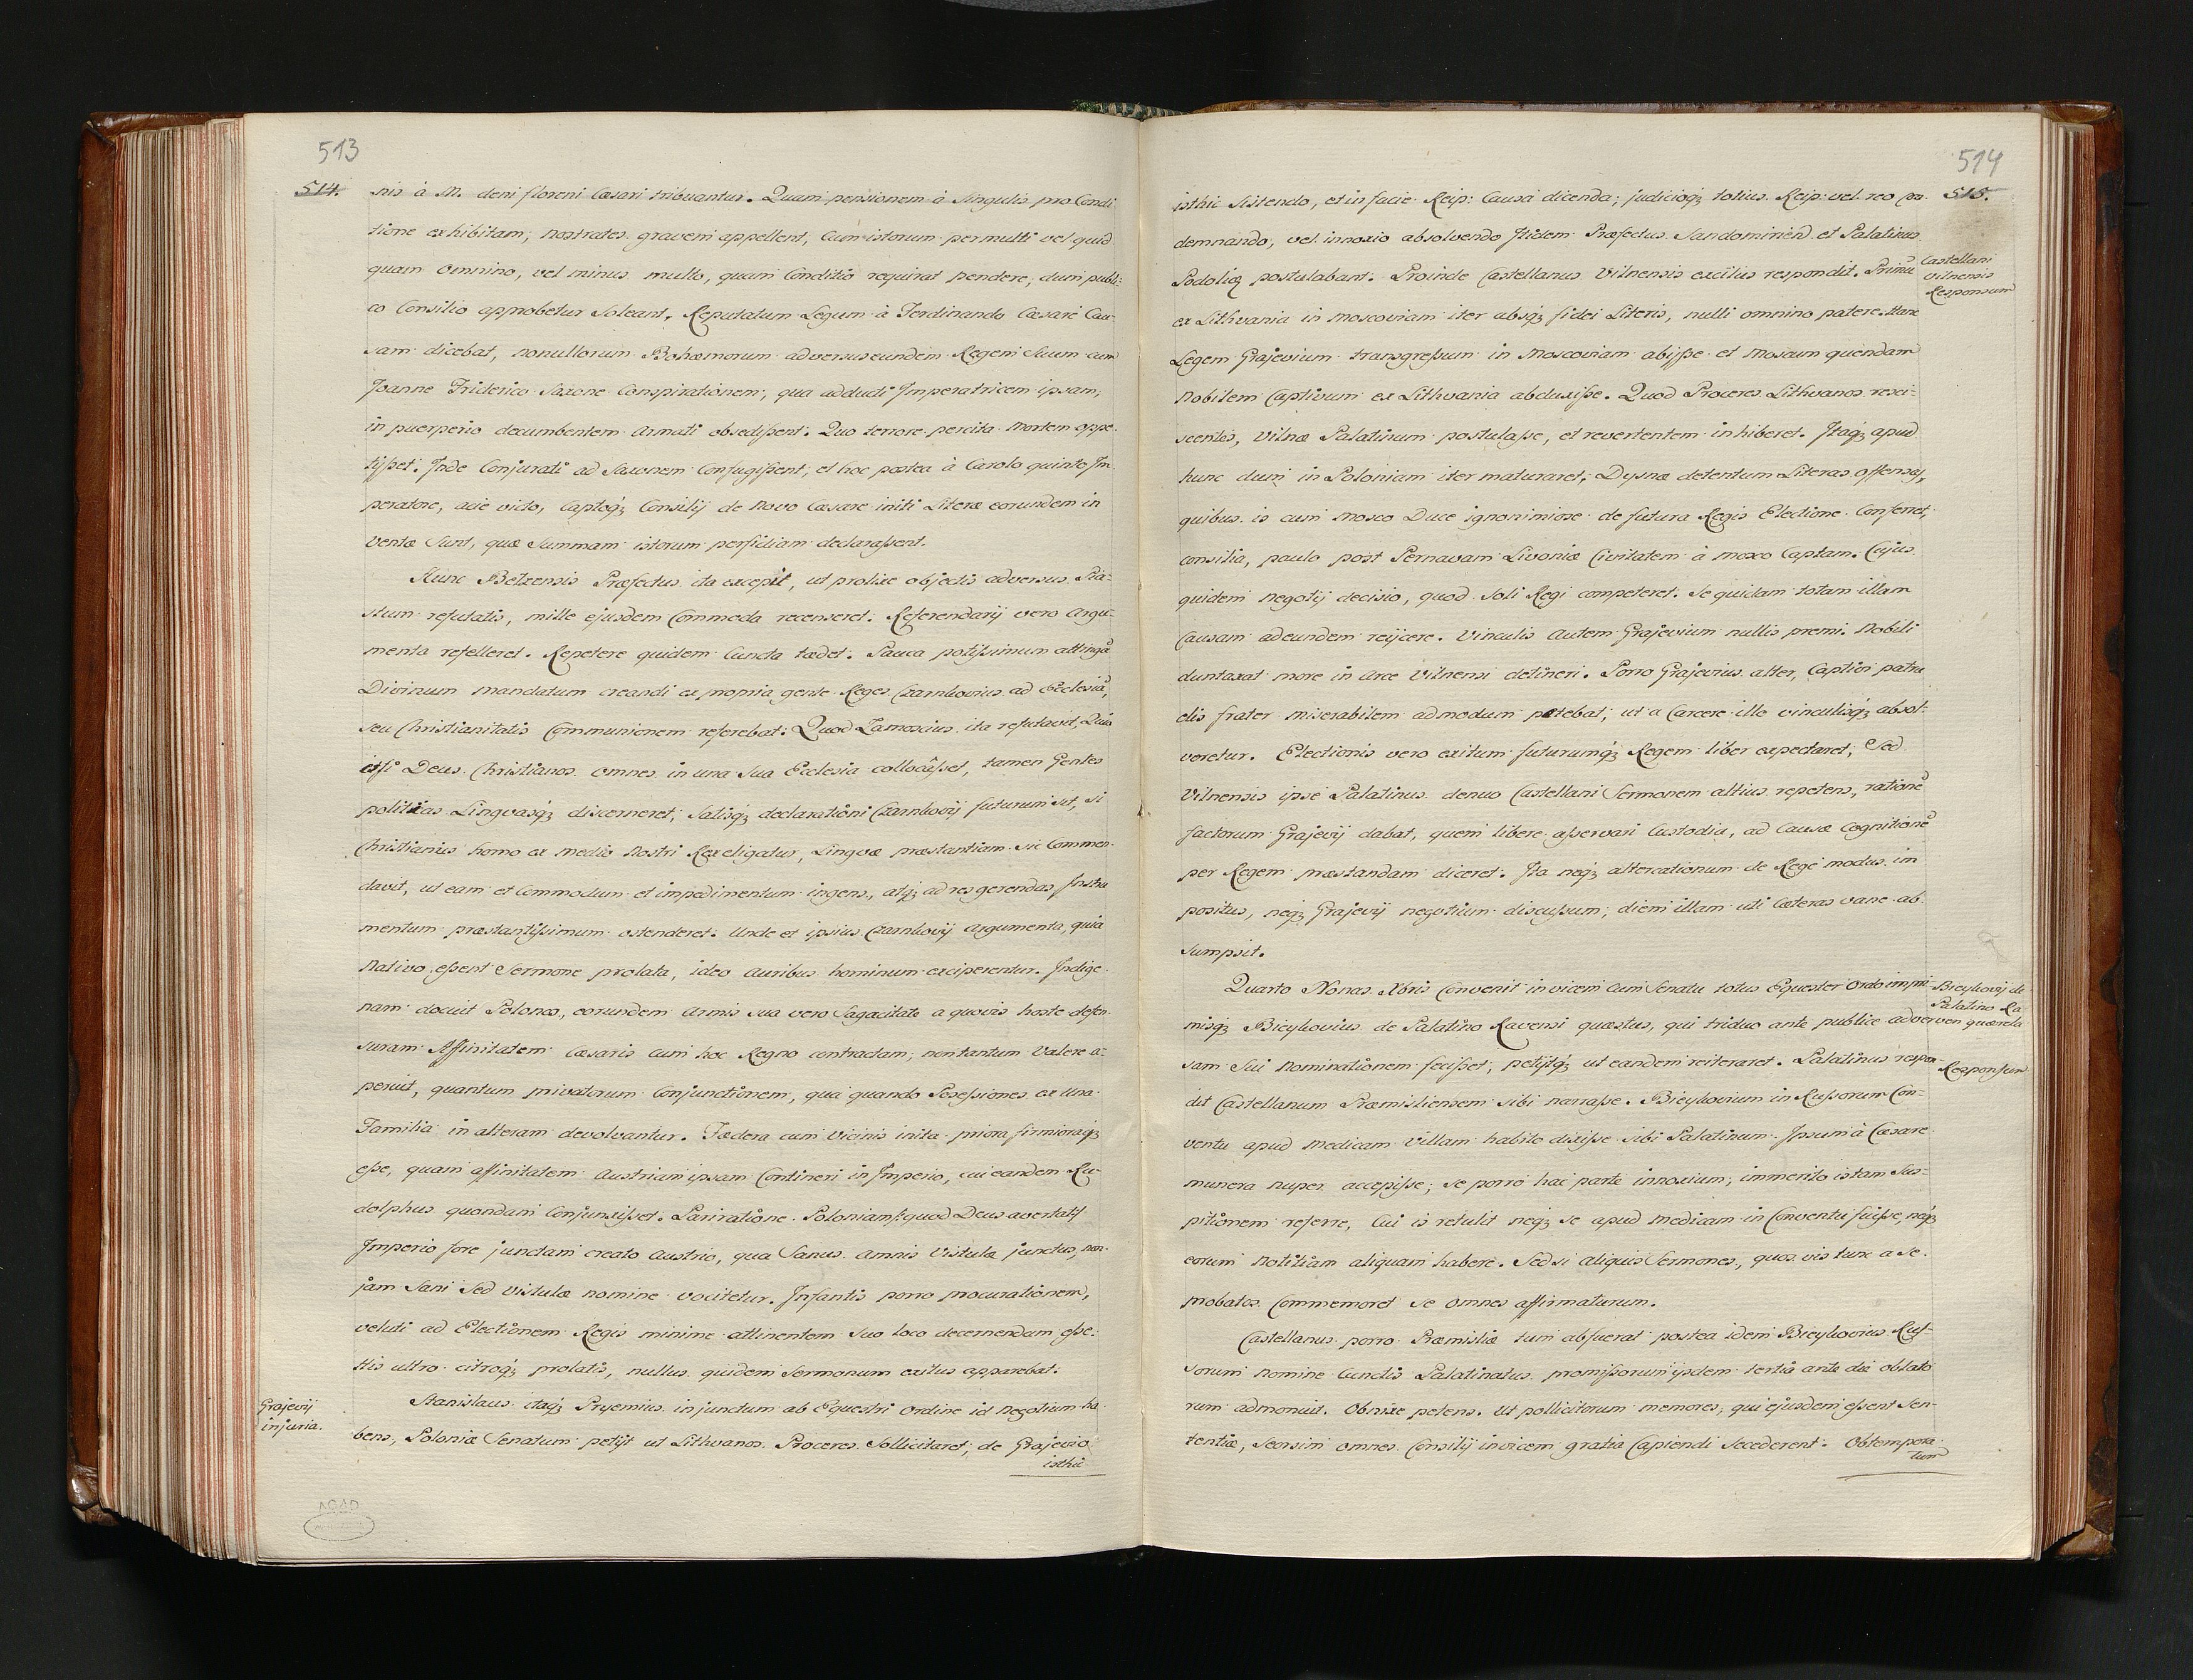 513
514.
nis à M. deni floreni Cæsari tribuantur. Quam pensionem à Singulis pro Condi
tione exhibitam; nostrates gravem appellent, Cum istorum permulti vel quid
quam omnino, vel minus multo, quam Conditio requirat pendere, dum publi:
co Consilio approbetur Soleant. Reputatum Legum à Ferdinando Cæsare Cau-
sam dicebat, nonullorum Bohæmorum adversus eundem Regem Suum cum
Joanne Friderico Saxone Conspirationem, qua adducti Imperatricem ipsam,
in puerperio decumbentem armati obsedissent. Quo terrore percita mortem oppe-
tijsset. Inde Conjurati ad Saxonem Confugissent, et hoc postea à Carolo quinto Im
peratore, acie victo, Captoq́; Consilij de Novo Cæsare initi Literæ eorundem in
ventæ Sunt, quæ Summam istorum perfidiam declarassent.
Hunc Betzensis Præfectus ita excepit, ut prolixe objectis adversus Pia-
stum refutatis, mille ejusdem Commoda recenseret. Referendarij vero Argu-
menta refelleret. Repetere quidem Cuncta tædet. Pauca potissimum attingā
Divinum mandatum creandi ex propria gente Reges Czarnkovius ad Ecclesiā,
seu Christianitatis Communionem referebat. Quod Zamoscius ita refutavit, Quia
etsi Deus Christianos omnes in una Sua Ecclesia collocâsset, tamen Gentes
politicas Lingvasq́; discerneret; Satisq́; declarationi Czarnkovij futurum sit, si
Christianus homo ex medio Nostri Rex eligatur, Lingvæ præstantiam sic Commen-
davit, ut eam et Commodum et impedimentum ingens, atq́; ad res gerendas Instru
mentum præstantissimum ostenderet. Unde et ipsius Czarnkovij argumenta, quia
Nativo essent Sermone prolata, ideo auribus hominum exciperentur. Indige-
nam docuit Polonos, eorundem armis sua vero Sagacitate a quovis hoste defen-
suram Affinitatem Cæsaris cum hoc Regno contractam, non tantum Valere a-
peruit, quantum privatorum Conjunctionem, qua quando Possessiones ex Una
Familia in alteram devolvantur. Fædera cum Vicinis inita priora firmioraq́;
esse, quam affinitatem Austriam ipsam Contineri in Imperio, cui eandem Ru-
dolphus quondam Conjunxisset. Pari ratione Poloniam /: quod Deus avertat :/
Imperio fore junctam creato Austrio, qua Sanus amnis Vistulæ junctus, non
jam Sani Sed Vistulæ nomine vocitetur. Infantis porro procurationem,
veluti ad Electionem Regis minime attinentem Suo loco decernendam esse.
His ultro citroq́; prolatis, nullus quidem Sermonum exitus apparebat.
Grajevij
injuria.
Stanislaus itaq́; Pryemius injunctum ab Equestri Ordine id Negotium ha-
bens, Poloniæ Senatum petijt ut Lithvanos Proceres Sollicitaret; de Grajevio
isthic
514
515.
isthic Sistendo, et in facie Reip: Causa dicenda; judicioq́; totius Reip: vel reo con-
demnando, vel innoxio absolvendo Itidem Præfectus Sandomirien̄ et Palatinus
Podoliæ postulabant. Proinde Castellanus Vilnensis excitus respondit. Primū
Castellani
Vilnensis
Responsum
ex Lithvania in Moscoviam iter absq́; fidei Literis, nulli omnino patere. Hanc
Legem Grajevium transgressum in Moscoviam abijsse et Moscum quendam
Nobilem Captivum ex Lithvania abduxisse. Quod Proceres Lithvanos resci-
scentes, Vilnæ Palatinum postulasse, et revertentem inhiberet. Itaq́; apud
hunc dum in Poloniam iter maturaret, Dysnæ detentum Literas offensas,
quibus is cum Mosco Duce ignominiose de futura Regis Electione Conferret,
consilia, paulo post Pernavam Livoniæ Civitatem à Mosco Captam. Cujus
quidem Negotij decisio, quod Soli Regi competeret. Se quidam totam illam
Causam ad eundem reijcere. Vinculis autem Grajevium nullis premi. Nobili
duntaxat more in Arce Vilnensi detineri. Porro Grajevius alter, Captivi patru
elis frater miserabilem admodum petebat, ut a Carcere illo vinculisq́; absol-
veretur. Electionis vero exitum futurumq́; Regem liber expectaret, Sed
Vilnensis ipse Palatinus denuo Castellani Sermonem altius repetens, rationē
factorum Grajevij dabat, quem libere asservari Custodia, ad Causæ Cognitionē
per Regem præstandam diceret. Ita neq́; altercationum de Rege modus im
positus, neq́; Grajevij negotium discussum, diem illam uti Cæteras vane ab
sumpsit.
Quarto Nonas Xbris Convenit invicem cum Senatu totus Equester Ordo impri-
misq́; Bieykovius de Palatino Ravensi quæstus, qui triduo ante publice adver
Bieykovij de
Palatino Ra
ven quærela
sam Sui Nominationem fecisset, petijtq́; ut eandem reiteraret. Palatinus respon-
Responsum
dit Castellanum Præmisliensem sibi narrasse. Bieykovium in Russorum Con-
ventu apud Medicam Villam habito dixisse sibi Palatinum. Ipsum à Cæsare
munera nuper accepisse; se porro hac parte innoxium, immerito istam Sus-
pitionem referre, Cui is retulit neq́; se apud Medicam in Conventu fuisse, neq́;
eorum Notitiam aliquam habere. Sed si aliquis Sermones, quos vis tunc a se
probatos Commemoret se omnes affirmaturum.
Castellanus porro Præmisliæ tum abfuerat postea idem Bieykovius Rus-
sorum nomine Cunctis Palatinatus promissorum ijsdem tertia ante die oblato
rum admonuit. Obnixe petens. Ut pollicitorum memores, qui ejusdem essent Sen-
tentiæ, Seorsim omnes Consilij invicem gratia Capiendi Secederent. Obtempera
tum
AGAD